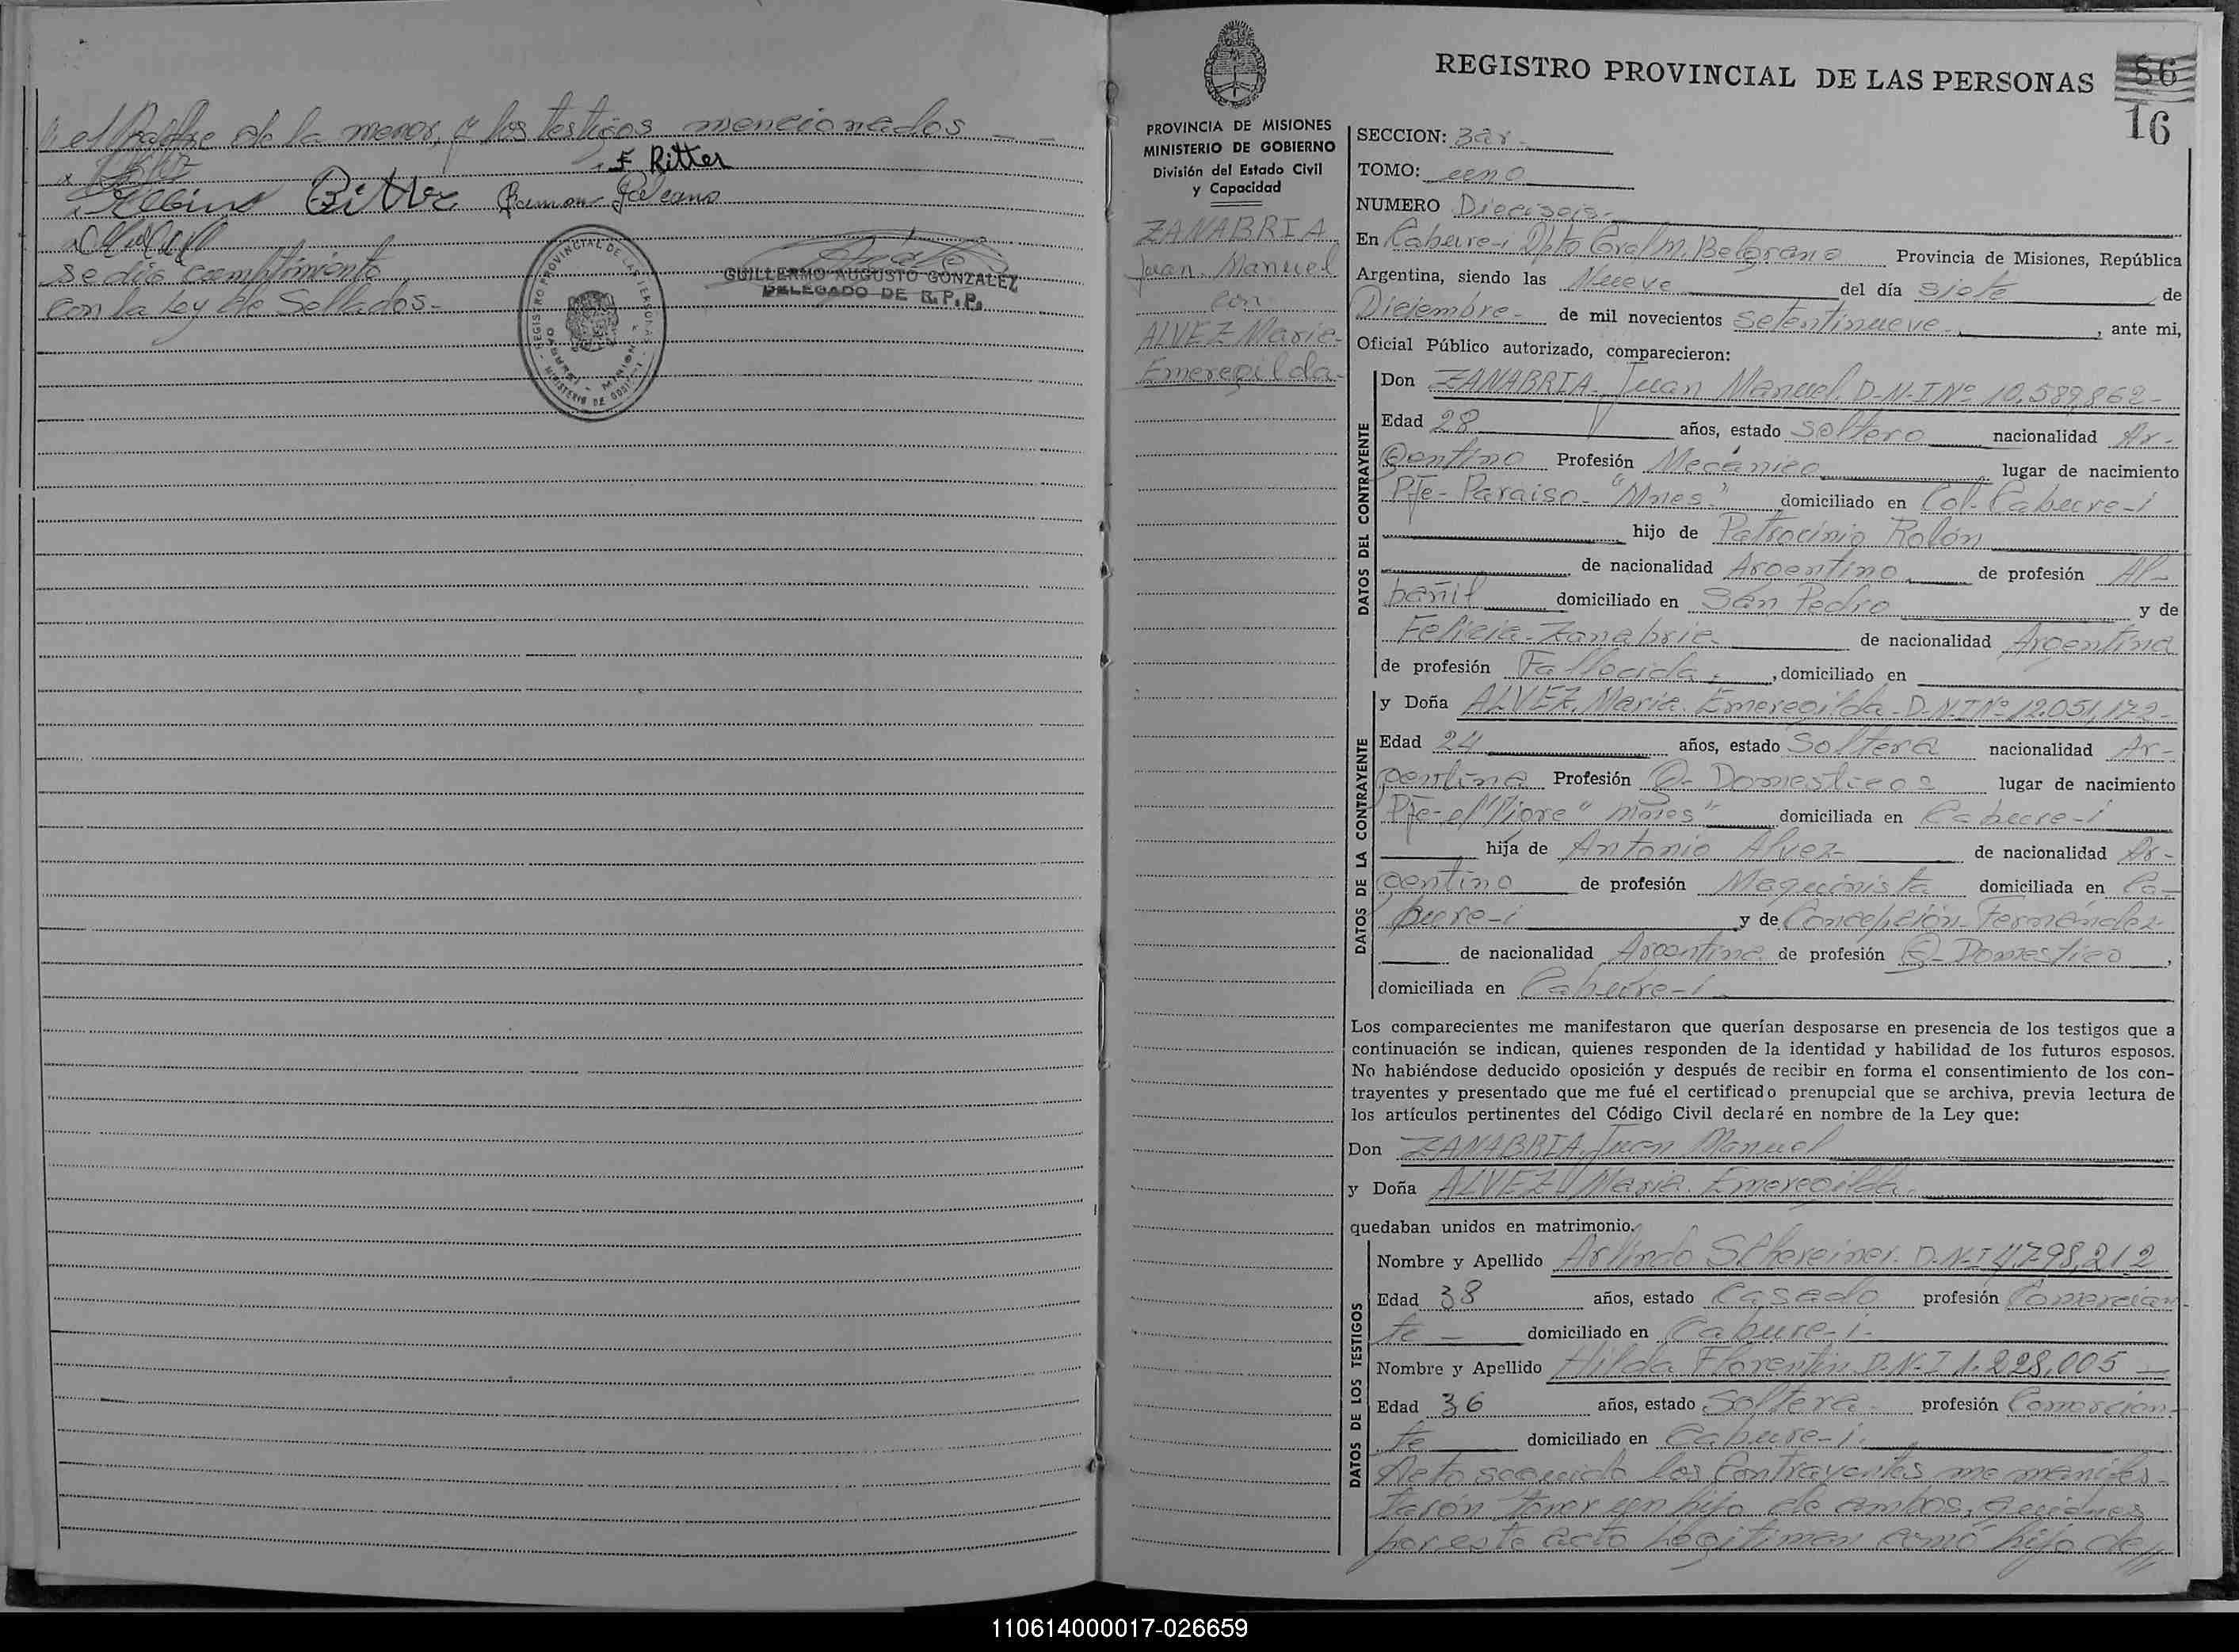 el Padre de la menor, y los testigos mencionados
F Ritter
Albino Ritter Ramon Galeano
se dió cumplimiento
con la Ley de Sellados-
REGISTRO PROVINCIAL DE LAS PERSONAS
GUILLERMO AUGUSTO GONZALEZ
DELEGADO DE R.P.P.
REGISTRO PROVINCIAL DE LAS PERSONAS
86
16
PROVINCIA DE MISIONES
MINISTERIO DE GOBIERNO
División del Estado Civil
y Capacidad
ZANABRIA
Juan Manuel
con
ALVEZ Maria
Emeregilda-
SECCION: 3ar
TOMO: uno
NUMERO Dieciseis-
En Cabure-i Dpto Gral M. Belgrano Provincia de Misiones, República
Argentina, siendo las Nueve del día siete de
Diciembre- de mil novecientos setentinueve-, ante mi,
Oficial Público autorizado, comparecieron:
DATOS DEL CONTRAYENTE
Don ZANABRIA- Juan Manuel. D-N-I Nº 10.589.862-
Edad 28 años, estado soltero nacionalidad Ar-
gentino Profesión Mecánico lugar de nacimiento
Pje- Paraiso- "Mnes" domiciliado en Col- Cabure-i
hijo de Patrocinio Rolón
de nacionalidad Argentino de profesión Al-
bañil domiciliado en San Pedro y de
Felicia- Zanabria de nacionalidad Argentina
de profesión Fallecida, domiciliado en
DATOS DE LA CONTRAYENTE
y Doña ALVEZ, Maria Emeregilda- D-N-I Nº 12.051.172-
Edad 24 años, estado Soltera nacionalidad Ar-
gentina Profesión Q- Domesticos lugar de nacimiento
Pje- el Tigre "Mnes" domiciliada en Cabure-i
hija de Antonio Alvez- de nacionalidad Ar-
gentino de profesión Maquinista domiciliada en Ca-
bure-i y de Concepción- Fernández-
de nacionalidad Argentina de profesión Q- Domestico,
domiciliada en Cabure-i
Los comparecientes me manifestaron que querían desposarse en presencia de los testigos que a
continuación se indican, quienes responden de la identidad y habilidad de los futuros esposos.
No habiéndose deducido oposición y después de recibir en forma el consentimiento de los con-
trayentes y presentado que me fué el certificado prenupcial que se archiva, previa lectura de
los artículos pertinentes del Código Civil declaré en nombre de la Ley que:
Don ZANABRIA, Juan Manuel
y Doña ALVEZ Maria. Emeregilda.
quedaban unidos en matrimonio.
DATOS DE LOS TESTIGOS
Nombre y Apellido Arlindo Schereiner. D-N-I 4.798.212
Edad 38 años, estado Casado profesión Comercian-
te - domiciliado en Cabure-i-
Nombre y Apellido Hilda Florentin D-N-I 1.228.005 -
Edad 36 años, estado Soltera profesión Comercian-
te domiciliado en Cabure-i.
Acto seguido los Contrayentes me manifes-
tarón tener un hijo de ambos, quiénes
por este acto Legitiman comó hijo de//
110614000017-026659